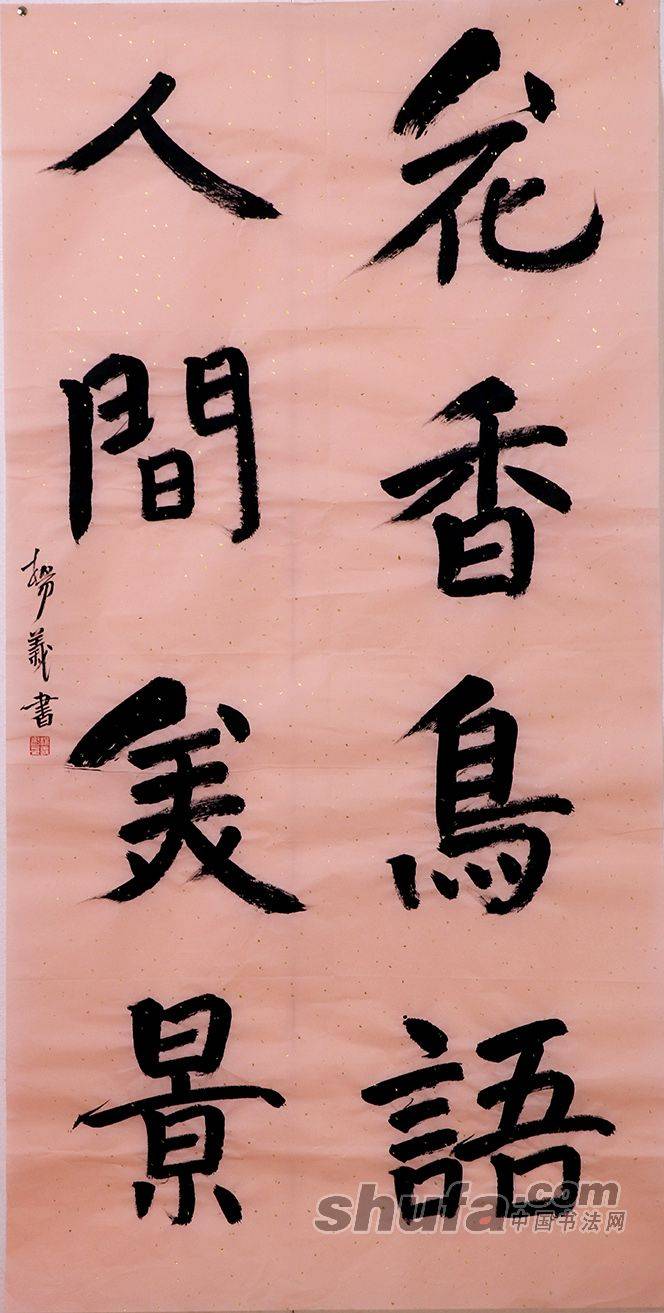 花香鳥語
人間美景
楊義書
shufa.com
中国书法网